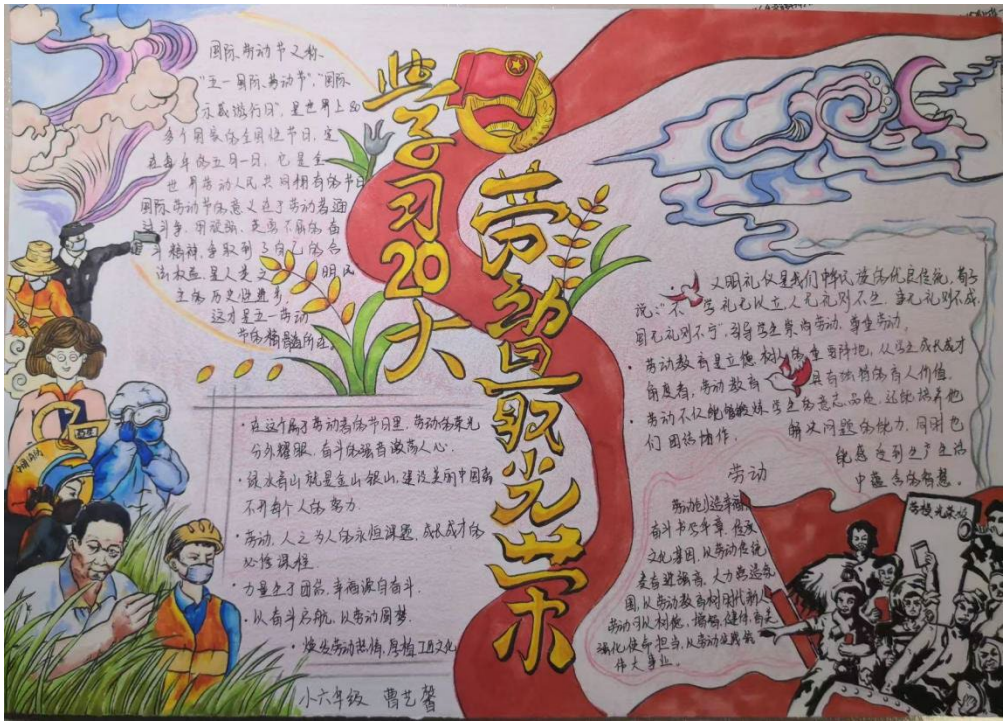 学习20大
劳动最光荣
国际劳动节又称
"五一国际劳动节"、"国际
示威游行日"，是世界上80
多个国家的全国性节日，定
在每年的五月一日，它是全
世界劳动人民共同拥有的节日
国际劳动节的意义在于劳动者通
过斗争，用顽强、英勇不屈的奋
斗精神，争取到了自己的合
法权益，是人类文明民
主的历史性进步，
这才是五一劳动
节的精髓所在。
·在这个属于劳动者的节日里，劳动的荣光
分外耀眼，奋斗的强音激荡人心.
·绿水青山就是金山银山，建设美丽中国离
不开每个人的努力.
·劳动，人之为人的永恒课题，成长成才的
必修课程
·力量生于团结，幸福源自奋斗.
·从奋斗启航，以劳动圆梦.
·焕发劳动热情，厚植工匠文化
小六年级 曹艺馨
文明礼仪是我们中华民族的优良传统，荀子
说："不学礼无以立，人无礼则不生，事无礼则不成，
国无礼则不宁"，引导学生崇尚劳动，尊重劳动。
·劳动教育是立德树人的重要阵地，从学生成长成才
角度看，劳动教育具有独特的育人价值.
·劳动不仅能够锻炼学生的意志品质，还能培养他
们团结协作、解决问题的能力，同时也
能感受到生产生活
中蕴含的智慧.
劳动
劳动创造幸福，
奋斗书写华章，传承
文化基因，从劳动传统
国，以劳动教育树时代新人
劳动可以树德、增智、健体、育美
强化使命担当，以劳动实践铸
伟大事业。
劳模光荣榜